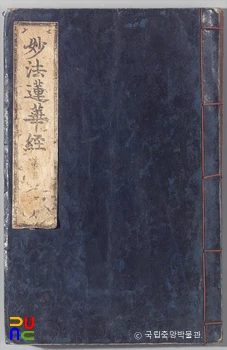 妙法蓮華經
© 국립중앙박물관